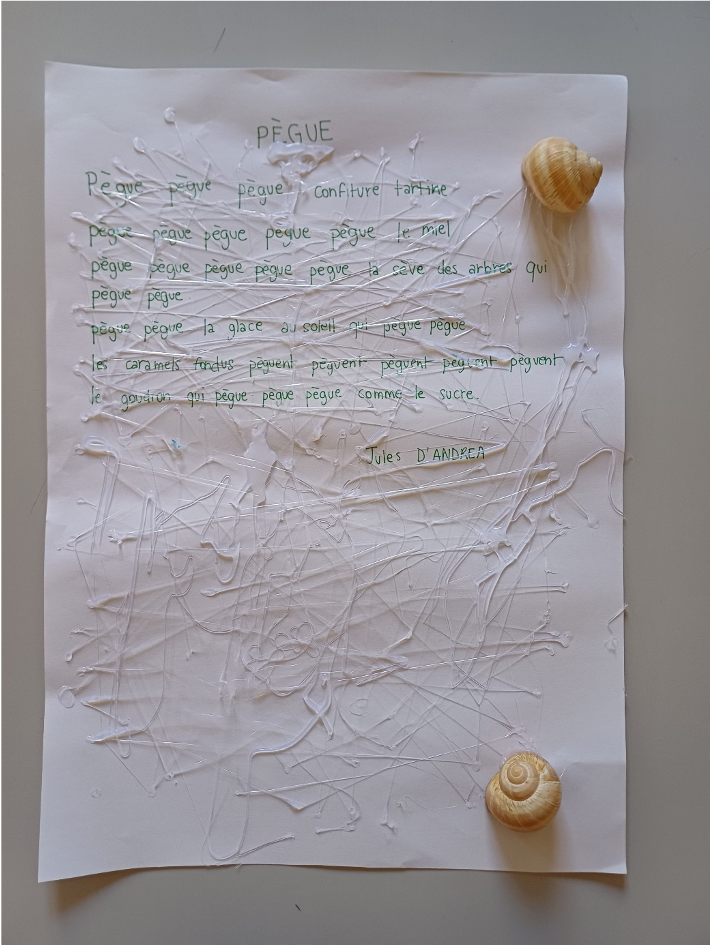 PÈGUE
Pègue pègue pègue confiture tartine
pègue pègue pègue pègue pègue le miel
pègue pègue pègue pègue pègue la sève des arbres qui
pègue pègue.
pègue pègue la glace au soleil qui pègue pègue
les caramels fondus pèguent pèguent pèguent pèguent pèguent
le goudron qui pègue pègue pègue comme le sucre.
Jules D'ANDREA